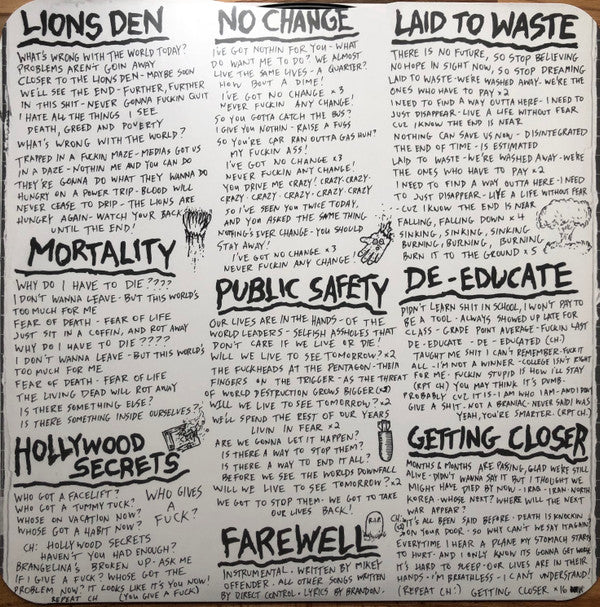 LIONS DEN
WHAT'S WRONG WITH THE WORLD TODAY?
PROBLEMS AREN'T GOIN AWAY
CLOSER TO THE LIONS DEN - MAYBE SOON
WE'LL SEE THE END - FURTHER, FURTHER
IN THIS SHIT - NEVER GONNA FUCKIN QUIT
I HATE ALL THE THINGS I SEE
DEATH, GREED AND POVERTY
WHAT'S WRONG WITH THE WORLD?
TRAPPED IN A FUCKIN MAZE - MEDIAS GOT US
IN A DAZE - NOTHIN ME AND YOU CAN DO
THEY'RE GONNA DO WHAT THEY WANNA DO
HUNGRY ON A POWER TRIP - BLOOD WILL
NEVER CEASE TO DRIP - THE LIONS ARE
HUNGRY AGAIN - WATCH YOUR BACK
UNTIL THE END!
MORTALITY
WHY DO I HAVE TO DIE????
I DON'T WANNA LEAVE - BUT THIS WORLD'S
TOO MUCH FOR ME
FEAR OF DEATH - FEAR OF LIFE
JUST SIT IN A COFFIN, AND ROT AWAY
WHY DO I HAVE TO DIE????
I DON'T WANNA LEAVE - BUT THIS WORLD'S
TOO MUCH FOR ME
FEAR OF DEATH - FEAR OF LIFE
THE LIVING DEAD WILL ROT AWAY
IS THERE SOMETHING ELSE?
IS THERE SOMETHING INSIDE OURSELVES??
HOLLYWOOD
SECRETS
WHO GOT A FACELIFT?
WHO GOT A TUMMY TUCK?
WHOSE ON VACATION NOW?
WHOSE GOT A HABIT NOW?
WHO GIVES
A
FUCK?
CH: HOLLYWOOD SECRETS
HAVEN'T YOU HAD ENOUGH?
BRANGELINA'S BROKEN UP - ASK ME
IF I GIVE A FUCK? WHOSE GOT THE
PROBLEM NOW? IT LOOKS LIKE IT'S YOU NOW!
REPEAT CH (YOU GIVE A FUCK)
NO CHANGE
I'VE GOT NOTHIN FOR YOU - WHAT
DO WANT ME TO DO? WE ALMOST
LIVE THE SAME LIVES - A QUARTER?
HOW BOUT A DIME!
I'VE GOT NO CHANGE x3
NEVER FUCKIN ANY CHANGE!
SO YOU GOTTA CATCH THE BUS?
I GIVE YOU NOTHIN - RAISE A FUSS
SO YOU'RE CAR RAN OUTTA GAS HUH?
MY FUCKIN ASS!
I'VE GOT NO CHANGE x3
NEVER FUCKIN ANY CHANGE!
YOU DRIVE ME CRAZY! CRAZY - CRAZY -
CRAZY - CRAZY - CRAZY - CRAZY - CRAZY
SO I'VE SEEN YOU TWICE TODAY,
AND YOU ASKED THE SAME THING
NOTHING'S EVER CHANGE - YOU SHOULD
STAY AWAY!
I'VE GOT NO CHANGE x3
NEVER FUCKIN ANY CHANGE!
PUBLIC SAFETY
OUR LIVES ARE IN THE HANDS - OF THE
WORLD LEADERS - SELFISH ASSHOLES THAT
DON'T CARE IF WE LIVE OR DIE!
WILL WE LIVE TO SEE TOMORROW? x2
THE FUCKHEADS AT THE PENTAGON - THEIR
FINGERS ON THE TRIGGER - AS THE THREAT
OF WORLD DESTRUCTION GROWS BIGGER
WILL WE LIVE TO SEE TOMORROW? x2
WE'LL SPEND THE REST OF OUR YEARS
LIVIN IN FEAR x2
ARE WE GONNA LET IT HAPPEN?
IS THERE A WAY TO STOP THEM?
IS THERE A WAY TO END IT ALL?
BEFORE WE SEE THE WORLDS DOWNFALL
WILL WE LIVE TO SEE TOMORROW? x2
WE GOT TO STOP THEM - WE GOT TO TAKE
OUR LIVES BACK!
FAREWELL
RIP
INSTRUMENTAL - WRITTEN BY MIKEY
OFFENDER. ALL OTHER SONGS WRITTEN
BY DIRECT CONTROL - LYRICS BY BRANDON.
LAID TO WASTE
THERE IS NO FUTURE, SO STOP BELIEVING
NO HOPE IN SIGHT NOW, SO STOP DREAMING
LAID TO WASTE - WE'RE WASHED AWAY - WE'RE THE
ONES WHO HAVE TO PAY x2
I NEED TO FIND A WAY OUTTA HERE - I NEED TO
JUST DISAPPEAR - LIVE A LIFE WITHOUT FEAR
CUZ I KNOW THE END IS NEAR
NOTHING CAN SAVE US NOW - DISINTEGRATED
THE END OF TIME - IS ESTIMATED
LAID TO WASTE - WE'RE WASHED AWAY - WE'RE
THE ONES WHO HAVE TO PAY x2
I NEED TO FIND A WAY OUTTA HERE - I NEED
TO JUST DISAPPEAR - LIVE A LIFE WITHOUT FEAR
- CUZ I KNOW THE END IS NEAR
FALLING, FALLING DOWN x4
SINKING, SINKING, SINKING
BURNING, BURNING, BURNING
BURN IT TO THE GROUND x5
DE-EDUCATE
DIDN'T LEARN SHIT IN SCHOOL, I WON'T PAY TO
BE A TOOL - ALWAYS SHOWED UP LATE FOR
CLASS - GRADE POINT AVERAGE - FUCKIN LAST
DE-EDUCATE - DE-EDUCATED (CH.)
TAUGHT ME SHIT I CAN'T REMEMBER - FUCK IT
ALL - I'M NOT A WINNER - COLLEGE ISN'T RIGHT
FOR ME - FUCKIN STUPID IS HOW I'LL STAY
(RPT CH) YOU MAY THINK IT'S DUMB -
PROBABLY CUZ IT IS - I AM WHO I AM - AND I DON'T
GIVE A SHIT - NOT A BRANIAC - NEVER SAID I WAS
YEAH, YOU'RE SMARTER. (RPT CH.)
GETTING CLOSER
MONTHS & MONTHS ARE PASSING, GLAD WE'RE STILL
ALIVE - DIDN'T WANNA SAY IT BUT I THOUGHT WE
MIGHT HAVE DIED BY NOW - IRAQ - IRAN - NORTH
KOREA - WHOSE NEXT? WHERE WILL THE NEXT
WAR APPEAR?
CH: IT'S ALL BEEN SAID BEFORE - DEATH IS KNOCKIN
ON YOUR DOOR - SO WHY CAN'T WE SAY IT AGAIN?
EVERYTIME I HEAR A PLANE MY STOMACH STARTS
TO HURT - AND I ONLY KNOW ITS GONNA GET WORSE
IT'S HARD TO SLEEP - OUR LIVES ARE IN THEIR
HANDS - I'M BREATHLESS - I CAN'T UNDERSTAND!
(REPEAT CH:) GETTING CLOSER x16